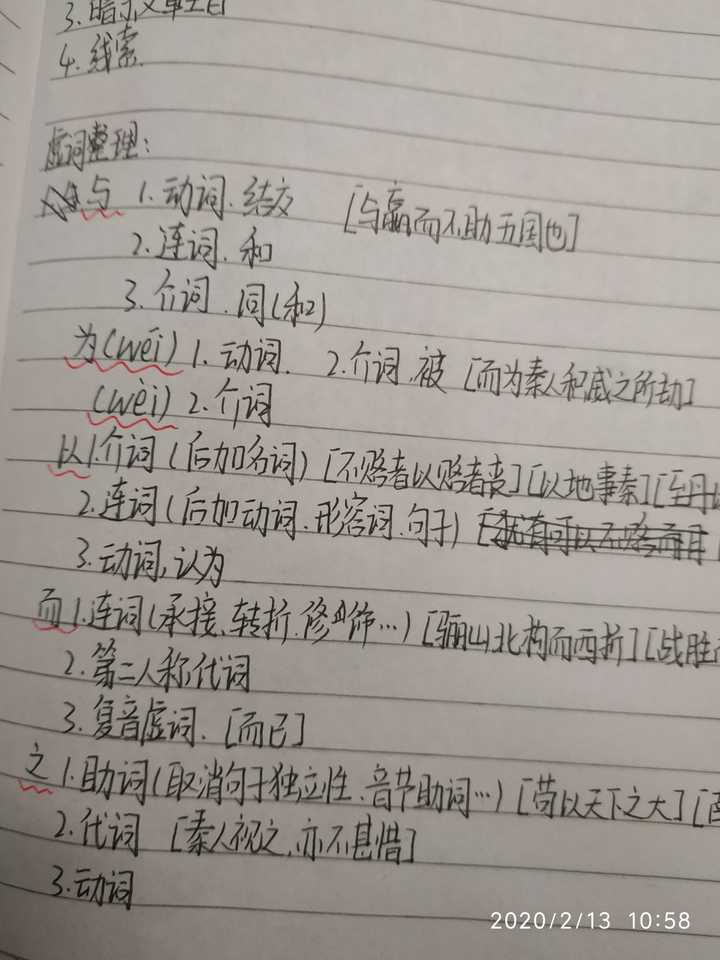 3. 暗示文章主旨
4. 线索
虚词整理:
与 1. 动词. 结交 [与嬴而不助五国也]
2. 连词. 和
3. 介词. 同(和)
为(wéi) 1. 动词. 2. 介词. 被 [而为秦人积威之所劫]
(wèi) 2. 介词
以 1. 介词(后加名词) [不赂者以赂者丧] [以地事秦] [至丹以
2. 连词(后加动词. 形容词. 句子) [犹有可以不赂而
3. 动词, 认为
而 1. 连词(承接、转折. 修饰…) [骊山北构而西折] [战胜
2. 第二人称代词
3. 复音虚词. [而已]
之 1. 助词(取消句子独立性、音节助词…) [苟以天下之大] [
2. 代词 [秦人视之, 亦不甚惜]
3. 动词
2020/2/13 10:58